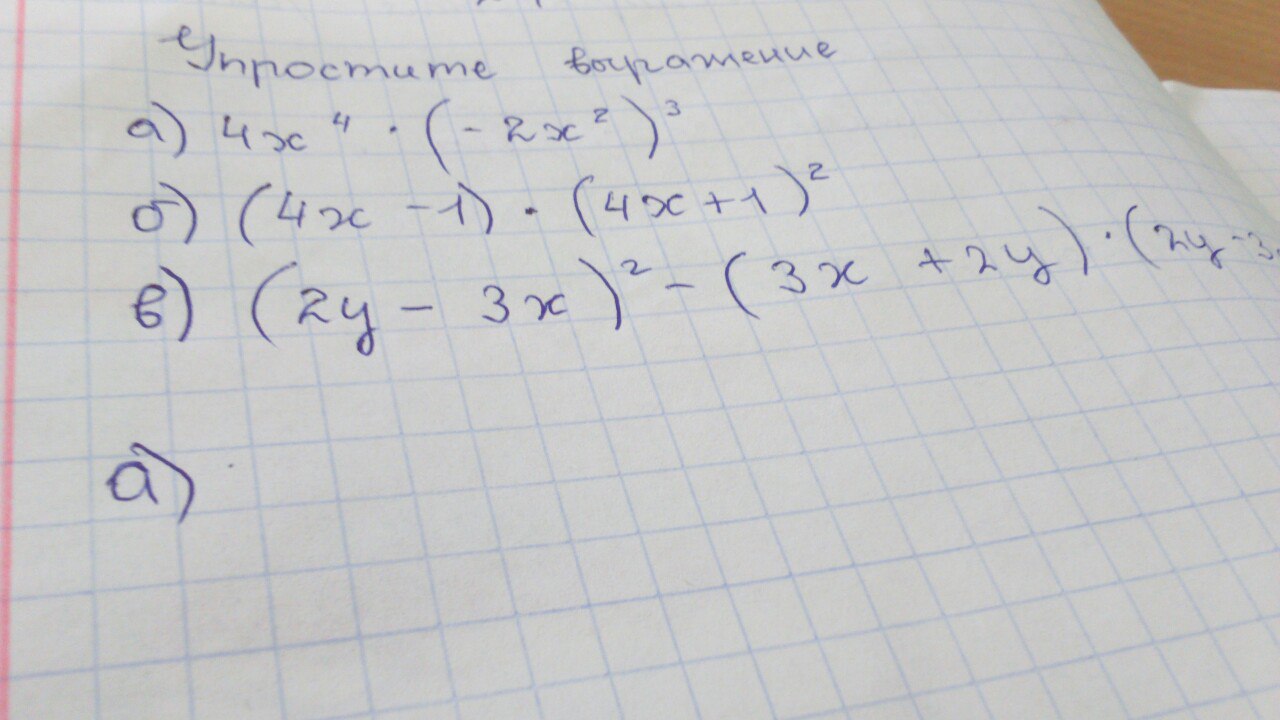 Упростите выражение
а) 4x⁴ · (-2x²)³
б) (4x -1) · (4x+1)²
в) (2y - 3x)² - (3x +2y) · (2y-3
а)